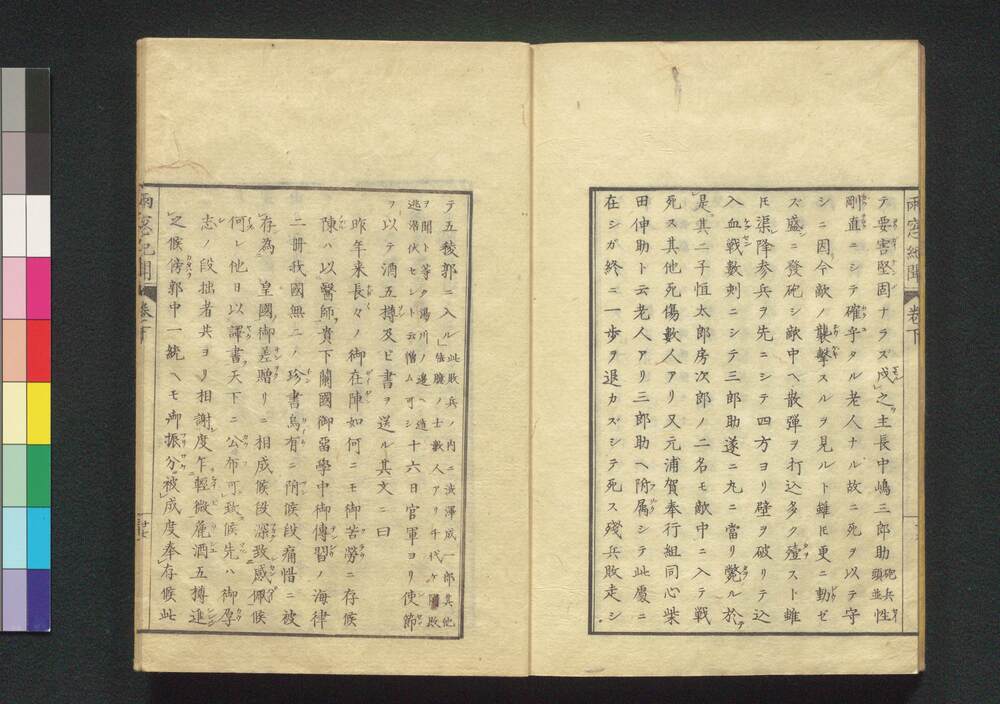 雨窓紀聞 巻下
テ要害堅固ナラズ戍之主長中嶋三郎助砲兵頭並性
剛直ニシテ確乎タル老人ナル故ニ死ヲ以テ守
シニ因今敵ノ襲撃スルヲ見ルト雖𪜈更ニ動ゼ
ズ盛ニ發砲シ敵中ヘ散彈ヲ打込多ク殪スト雖
𪜈渠降参兵ヲ先ニシテ四方ヨリ壁ヲ破リテ込
入血戰數刺ニシテ三郎助遂ニ丸ニ當リ斃ル於
是其二子恒太郎房次郎ノ二名モ敵中ニ入テ戰
死ス其他死傷數人アリ又元浦賀奉行組同心柴
田伸助ト云老人アリ三郎助ヘ附属シテ此處ニ
在シガ終ニ一歩ヲ退カズシテ死ス殘兵敗走シ
テ五稜郭ニ入ル此敗兵ノ内ニ渋澤成一郎其他
強膽ノ士數人アリ千代ケ敗
ヲ聞ト等ク湯川ノ邊ヘ遁
逃潜伏セシト云憎ム可シ十六日官軍ヨリ使節
ヲ以テ酒五樽及ビ書ヲ送ル其文ニ曰
昨年来長々ノ御在陣如何ニモ御苦勞ニ存候
陳ハ以醫師貴下蘭國御留學中御傳習ノ海律
二冊我國無二ノ珍書烏有ニ附候段痛惜ニ被
存為 皇國御差贈リニ相成候段深致感佩候
何レ他日以譯書天下ニ公布可致候先ハ御厚
志ノ段拙者共ヨリ相謝度乍輕微麁酒五樽進
之候傍郭中一統ヘモ御振分被成度奉存候此
雨窓紀聞 巻下